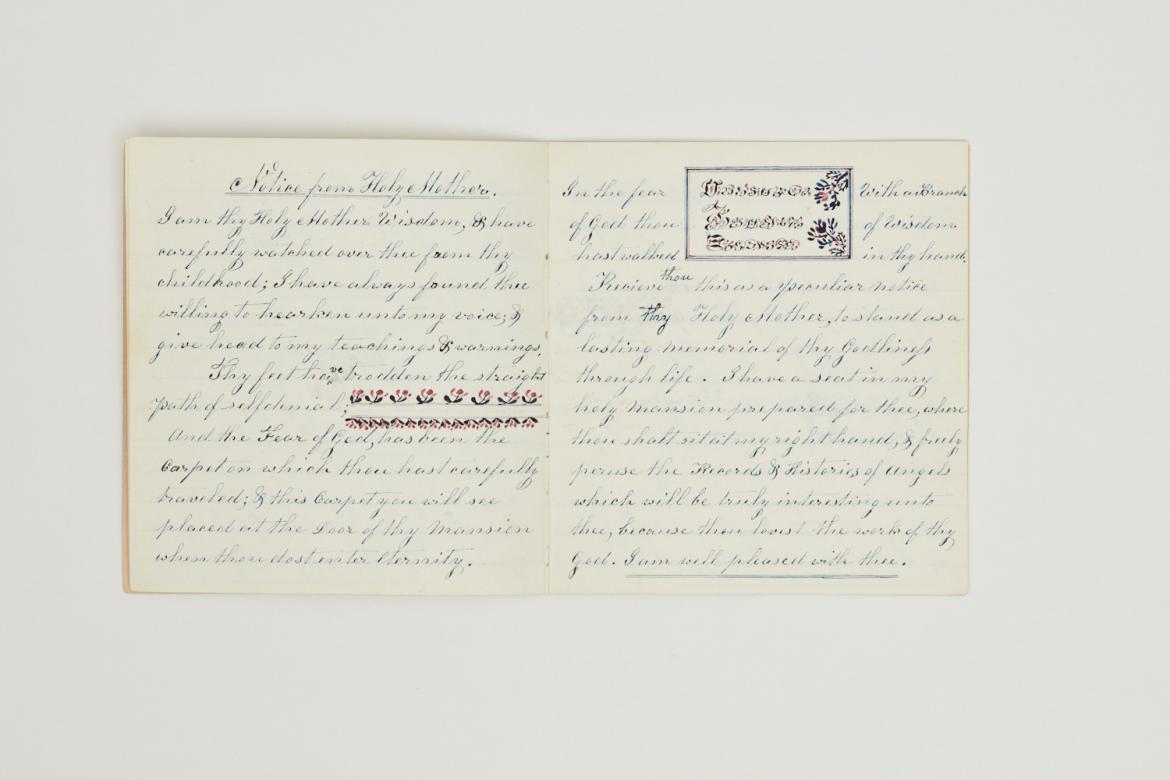 Notice from Holy Mother.
I am thy Holy Mother Wisdom, & have
carefully watched over thee from thy
childhood; I have always found thee
willing to hearken unto my voice; &
give head to my teachings & warnings.
Thy feet have trodden the straight
path of selfdenial;
And the Fear of God, has been the
Carpet on which thou hast carefully
traveled; & this Carpet you will see
placed at the Door of thy Mansion
when thou dost enter Eternity.
In the fear
of God thou
hast walked
With a Branch
of Wisdom
in thy hand.
Recieve thou this as a peculiar notice
from thy Holy Mother, to stand as a
lasting memorial of thy Godliness
through life. I have a seat in my
holy Mansion prepared for thee, where
thou shalt sit at my right hand, & freely
peruse the Records & Histories of Angels
which will be truly interesting unto
thee, because thou lovest the work of thy
God. I am well pleased with thee.